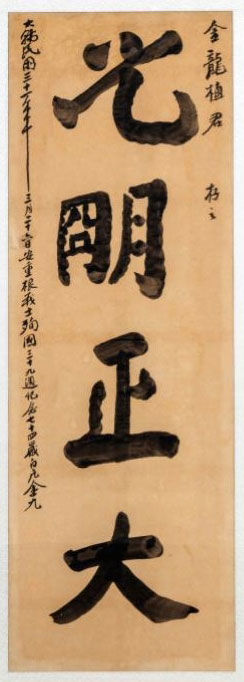 金龍植君
光朙正大
大韓民國三十一年三月二十六日安重根義士殉國三十九週紀念七十四歲白凡金九